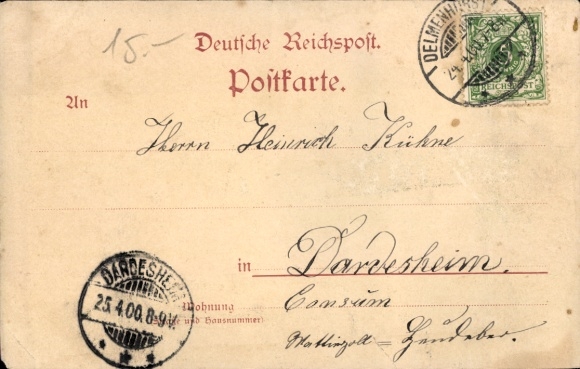 15.-
Deutsche Reichspost.
Postkarte.
DELMENHORST
24.4.00.
5
REICHSPOST
An
Herrn Heinrich Kühne
in Dardesheim.
Wohnung
(Straße und Hausnummer)
Consum
Mattierzoll = Heudeber.
DARDESHEIM
25.4.00.8-9V.